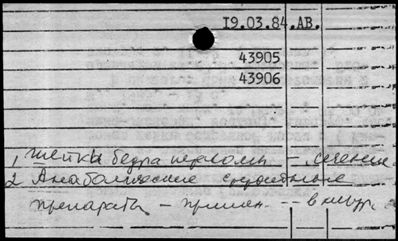 19.03.84.АВ.
43905
43906
1, шейка бедра переломы – лечение
2 Анаболические стероидные
препараты – примен. --